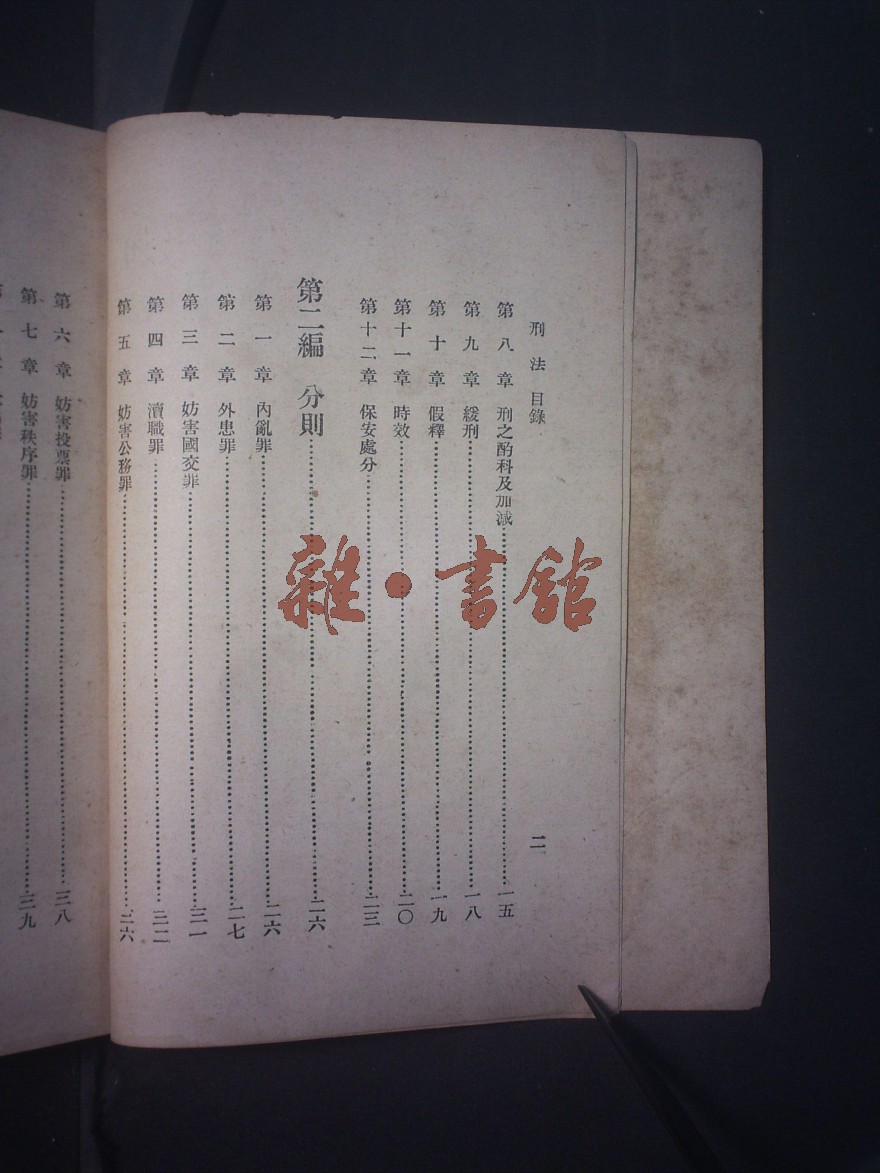 刑法 目錄 二
第八章 刑之酌科及加減 一五
第九章 緩刑 一八
第十章 假釋 一九
第十一章 時效 二〇
第十二章 保安處分 二三
第二編 分則 二六
第一章 內亂罪 二六
第二章 外患罪 二七
第三章 妨害國交罪 三一
第四章 瀆職罪 三二
第五章 妨害公務罪 三六
第六章 妨害投票罪 三八
第七章 妨害秩序罪 三九
雜·書館